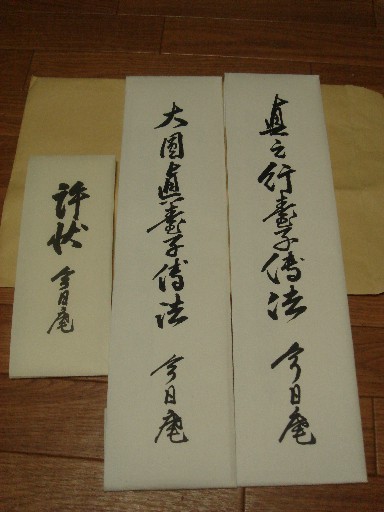 眞之行臺子傳法 今日庵
大圓眞臺子傳法 今日庵
許状 今日庵